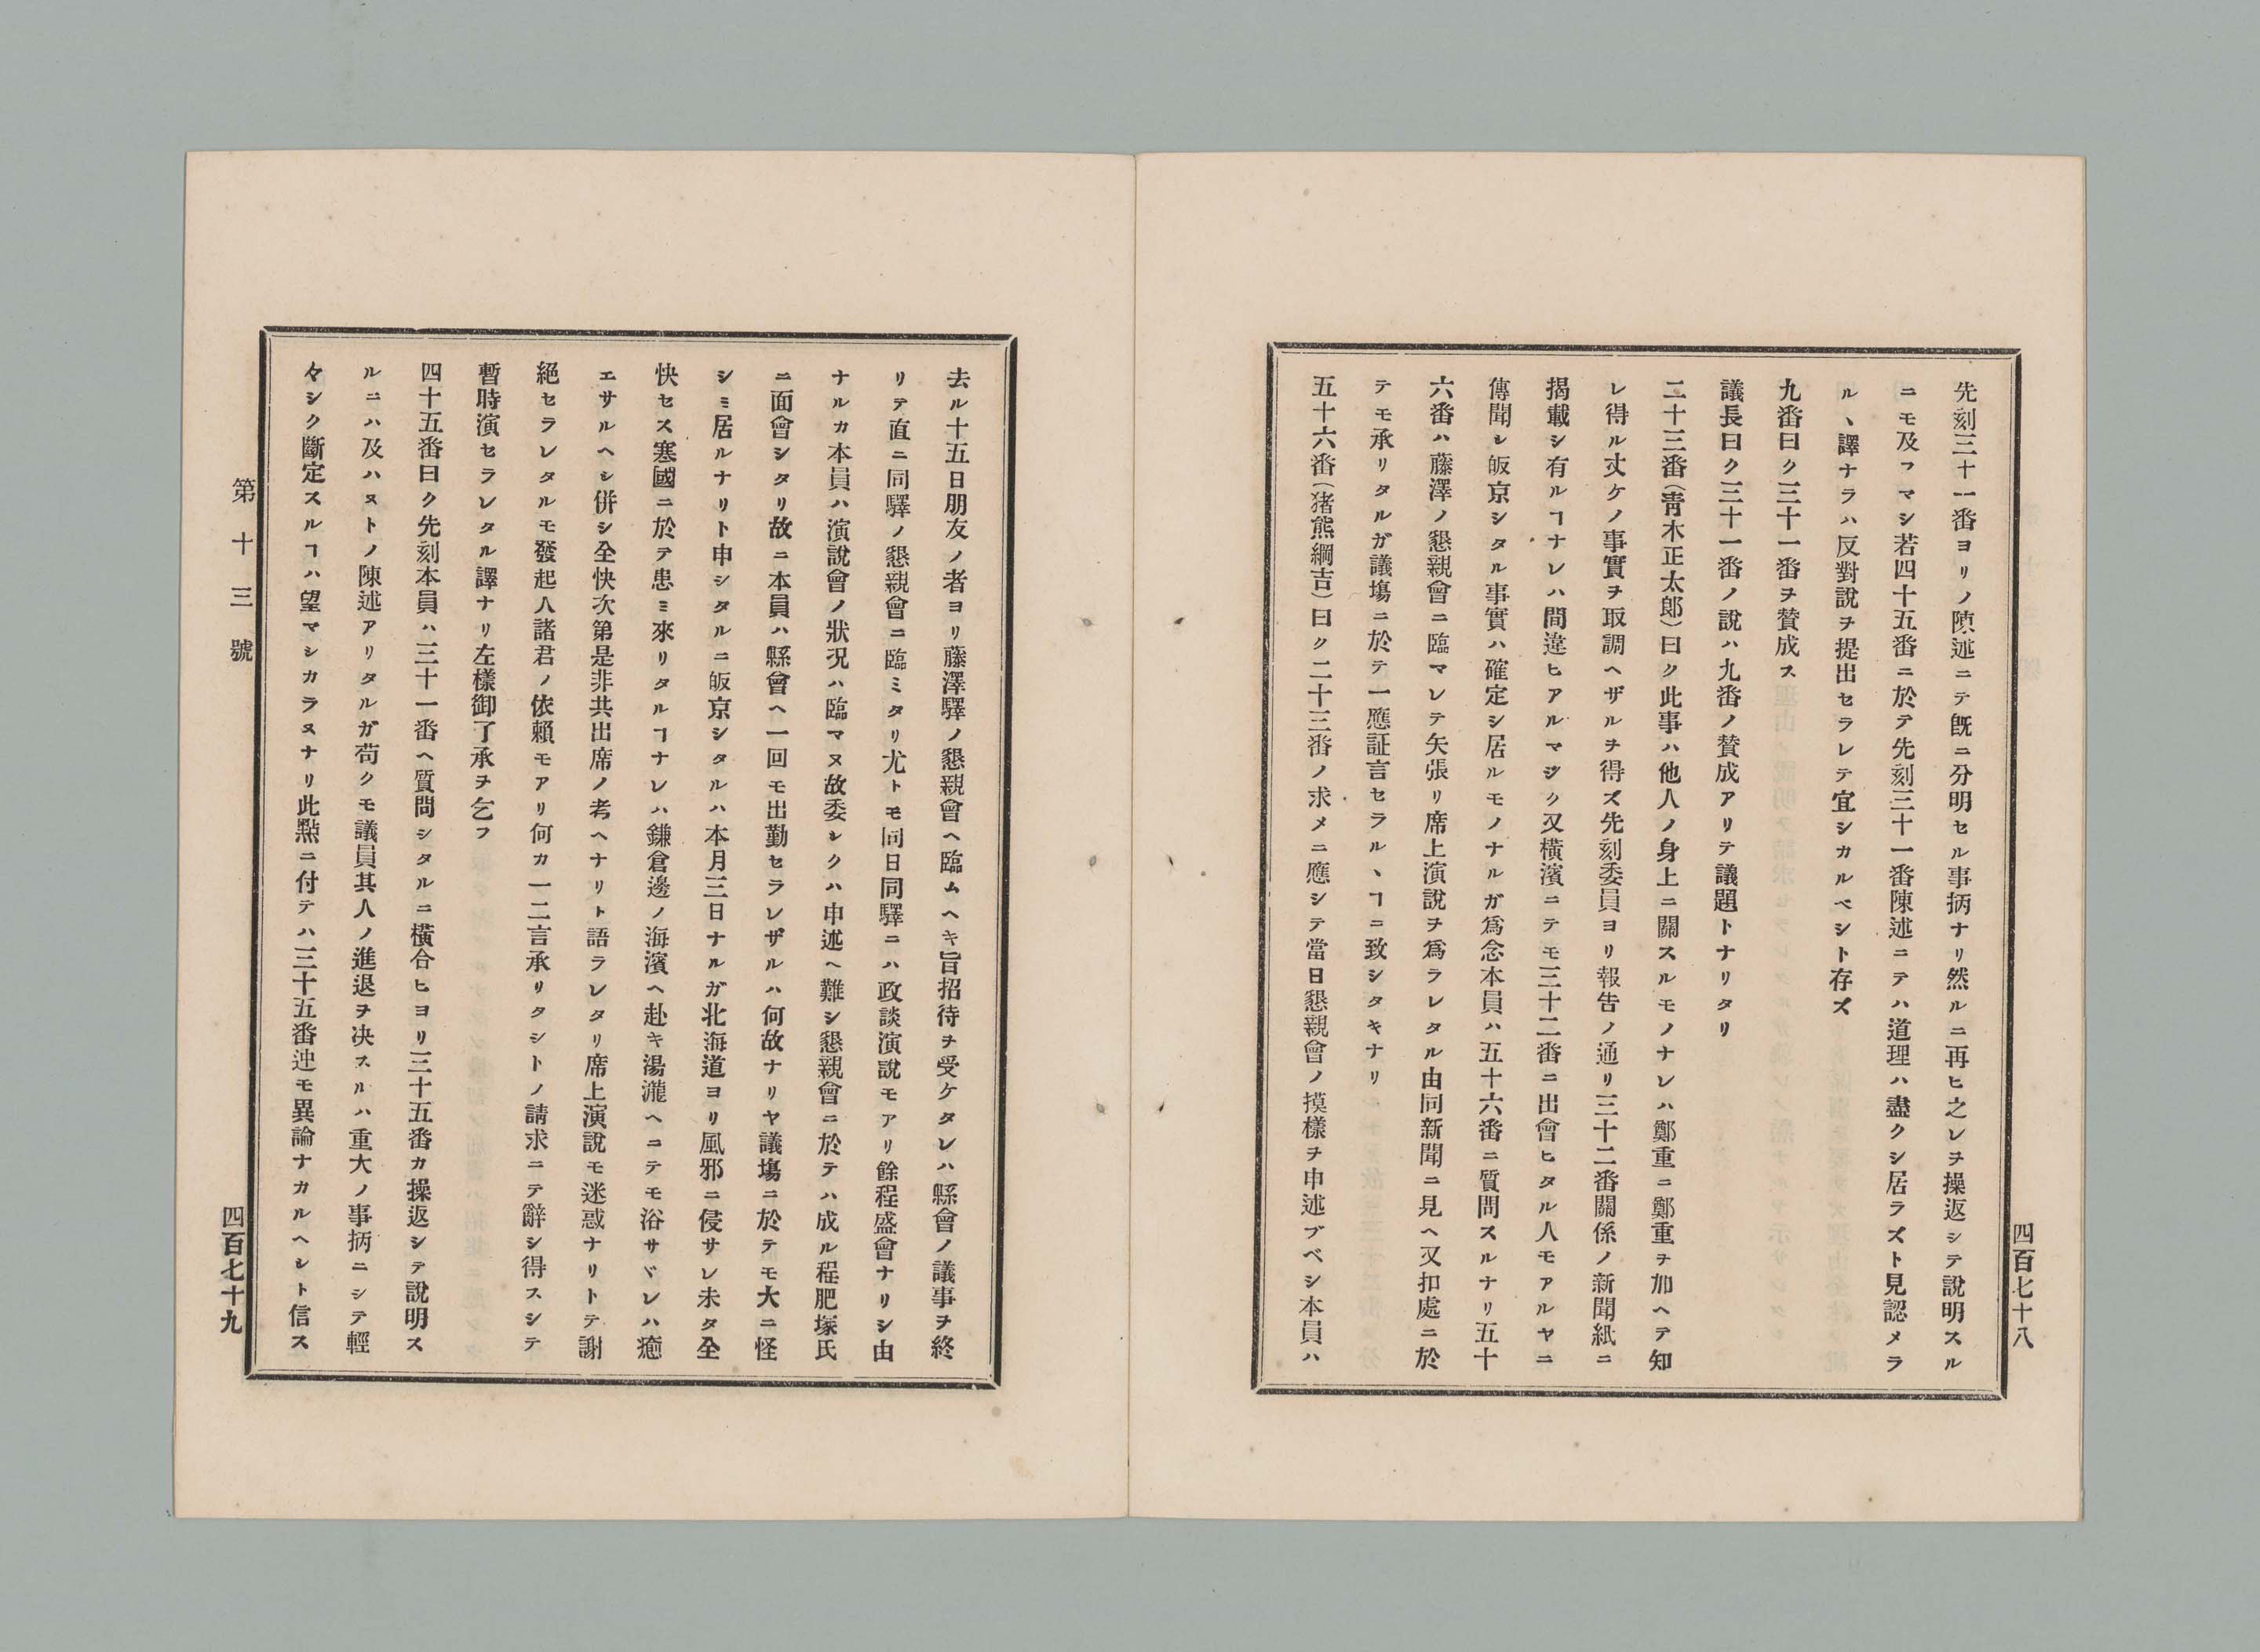 先刻三十一番ヨリノ陳述ニテ既ニ分明セル事抦ナリ然ルニ再ヒ之レヲ操返シテ說明スル
ニモ及フマシ若四十五番ニ於テ先刻三十一番陳述ニテハ道理ハ盡クシ居ラズト見認メラ
ルヽ譯ナラハ反對說ヲ提出セラレテ宜シカルベシト存ズ
九番曰ク三十一番ヲ賛成ス
議長曰ク三十一番ノ說ハ九番ノ賛成アリテ議題トナリタリ
二十三番(靑木正太郎)曰ク此事ハ他人ノ身上ニ關スルモノナレハ鄭重ニ鄭重ヲ加ヘテ知
レ得ル丈ケノ事實ヲ取調ヘザルヲ得ズ先刻委員ヨリ報告ノ通リ三十二番關係ノ新聞紙ニ
揭載シ有ルヿナレハ間違ヒアルマジク又橫濱ニテモ三十二番ニ出會ヒタル人モアルヤニ
傳聞シ皈京シタル事實ハ確定シ居ルモノナルガ爲念本員ハ五十六番ニ質問スルナリ五十
六番ハ藤澤ノ懇親會ニ臨マレテ矢張リ席上演說ヲ爲ラレタル由同新聞ニ見ヘ又扣處ニ於
テモ承リタルガ議塲ニ於テ一應証言セラルヽヿニ致シタキナリ
五十六番(猪熊綱吉)曰ク二十三番ノ求メニ應シテ當日懇親會ノ摸樣ヲ申述ブベシ本員ハ
四百七十八
去ル十五日朋友ノ者ヨリ藤澤驛ノ懇親會ヘ臨ムヘキ旨招待ヲ受ケタレハ縣會ノ議事ヲ終
リテ直ニ同驛ノ懇親會ニ臨ミタリ尤トモ同日同驛ニハ政談演說モアリ餘程盛會ナリシ由
ナルカ本員ハ演說會ノ狀況ハ臨マヌ故委シクハ申述ヘ難シ懇親會ニ於テハ成ル程肥塚氏
ニ面會シタリ故ニ本員ハ縣會ヘ一回モ出勤セラレザルハ何故ナリヤ議塲ニ於テモ大ニ怪
シミ居ルナリト申シタルニ皈京シタルハ本月三日ナルガ北海道ヨリ風邪ニ侵サレ未タ全
快セス寒國ニ於テ患ミ來リタルヿナレハ鎌倉邊ノ海濱ヘ赴キ湯瀧ヘニテモ浴サヾレハ癒
エサルヘシ併シ全快次第是非共出席ノ考ヘナリト語ラレタリ席上演說モ迷惑ナリトテ謝
絕セラレタルモ發起人諸君ノ依賴モアリ何カ一二言承リタシトノ請求ニテ辭シ得スシテ
暫時演セラレタル譯ナリ左樣御了承ヲ乞フ
四十五番曰ク先刻本員ハ三十一番ヘ質問シタルニ橫合ヒヨリ三十五番カ操返シテ說明ス
ルニハ及ハヌトノ陳述アリタルガ苟クモ議員其人ノ進退ヲ決スルハ重大ノ事抦ニシテ輕
々マシク斷定スルヿハ望マシカラヌナリ此點ニ付テハ三十五番迚モ異論ナカルヘシト信ス
第十三號
四百七十九